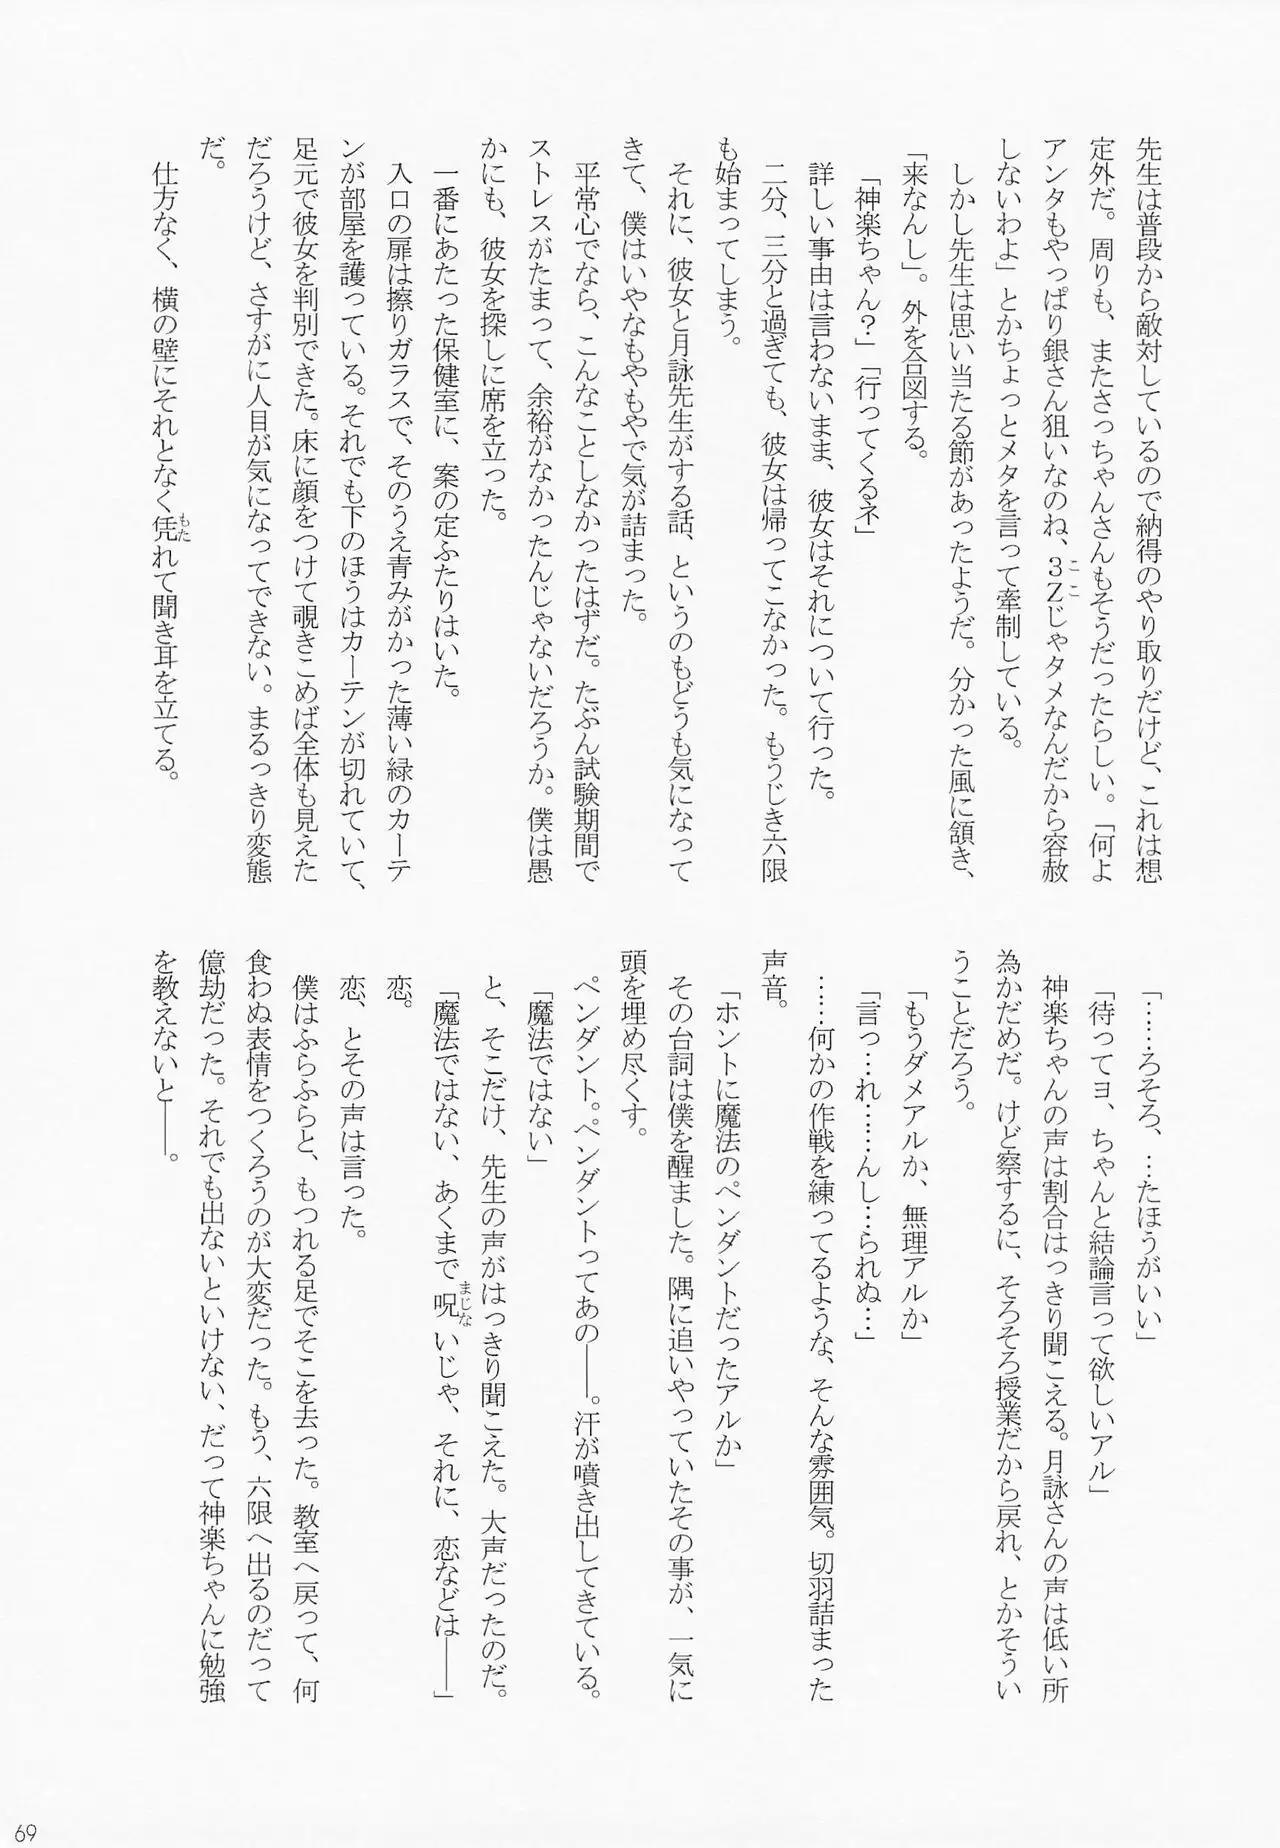 先生は普段から敵対しているので納得のやり取りだけど、これは想
定外だ。周りも、またさっちゃんさんもそうだったらしい。「何よ
アンタもやっぱり銀さん狙いなのね、３Ｚじゃタメなんだから容赦
ここ
しないわよ」とかちょっとメタを言って牽制している。
しかし先生は思い当たる節があったようだ。分かった風に頷き、
「来なんし」。外を合図する。
「神楽ちゃん？」「行ってくるネ」
詳しい事由は言わないまま、彼女はそれについて行った。
二分、三分と過ぎても、彼女は帰ってこなかった。もうじき六限
も始まってしまう。
それに、彼女と月詠先生がする話、というのもどうも気になって
きて、僕はいやなもやもやで気が詰まった。
平常心でなら、こんなことしなかったはずだ。たぶん試験期間で
ストレスがたまって、余裕がなかったんじゃないだろうか。僕は愚
かにも、彼女を探しに席を立った。
一番にあたった保健室に、案の定ふたりはいた。
入口の扉は擦りガラスで、そのうえ青みがかった薄い緑のカーテ
ンが部屋を護っている。それでも下のほうはカーテンが切れていて、
足元で彼女を判別できた。床に顔をつけて覗きこめば全体も見えた
だろうけど、さすがに人目が気になってできない。まるっきり変態
だ。
仕方なく、横の壁にそれとなく凭れて聞き耳を立てる。
もた
「……ろそろ、…たほうがいい」
「待ってヨ、ちゃんと結論言って欲しいアル」
神楽ちゃんの声は割合はっきり聞こえる。月詠さんの声は低い所
為かだめだ。けど察するに、そろそろ授業だから戻れ、とかそうい
うことだろう。
「もうダメアルか、無理アルか」
「言っ…れ……んし…られぬ…」
……何かの作戦を練ってるような、そんな雰囲気。切羽詰まった
声音。
「ホントに魔法のペンダントだったアルか」
その台詞は僕を醒ました。隅に追いやっていたその事が、一気に
頭を埋め尽くす。
ペンダント。ペンダントってあの――。汗が噴き出してきている。
「魔法ではない」
と、そこだけ、先生の声がはっきり聞こえた。大声だったのだ。
「魔法ではない、あくまで呪いじゃ、それに、恋などは――」
まじな
恋。
恋、とその声は言った。
僕はふらふらと、もつれる足でそこを去った。教室へ戻って、何
食わぬ表情をつくろうのが大変だった。もう、六限へ出るのだって
億劫だった。それでも出ないといけない、だって神楽ちゃんに勉強
を教えないと――。
69